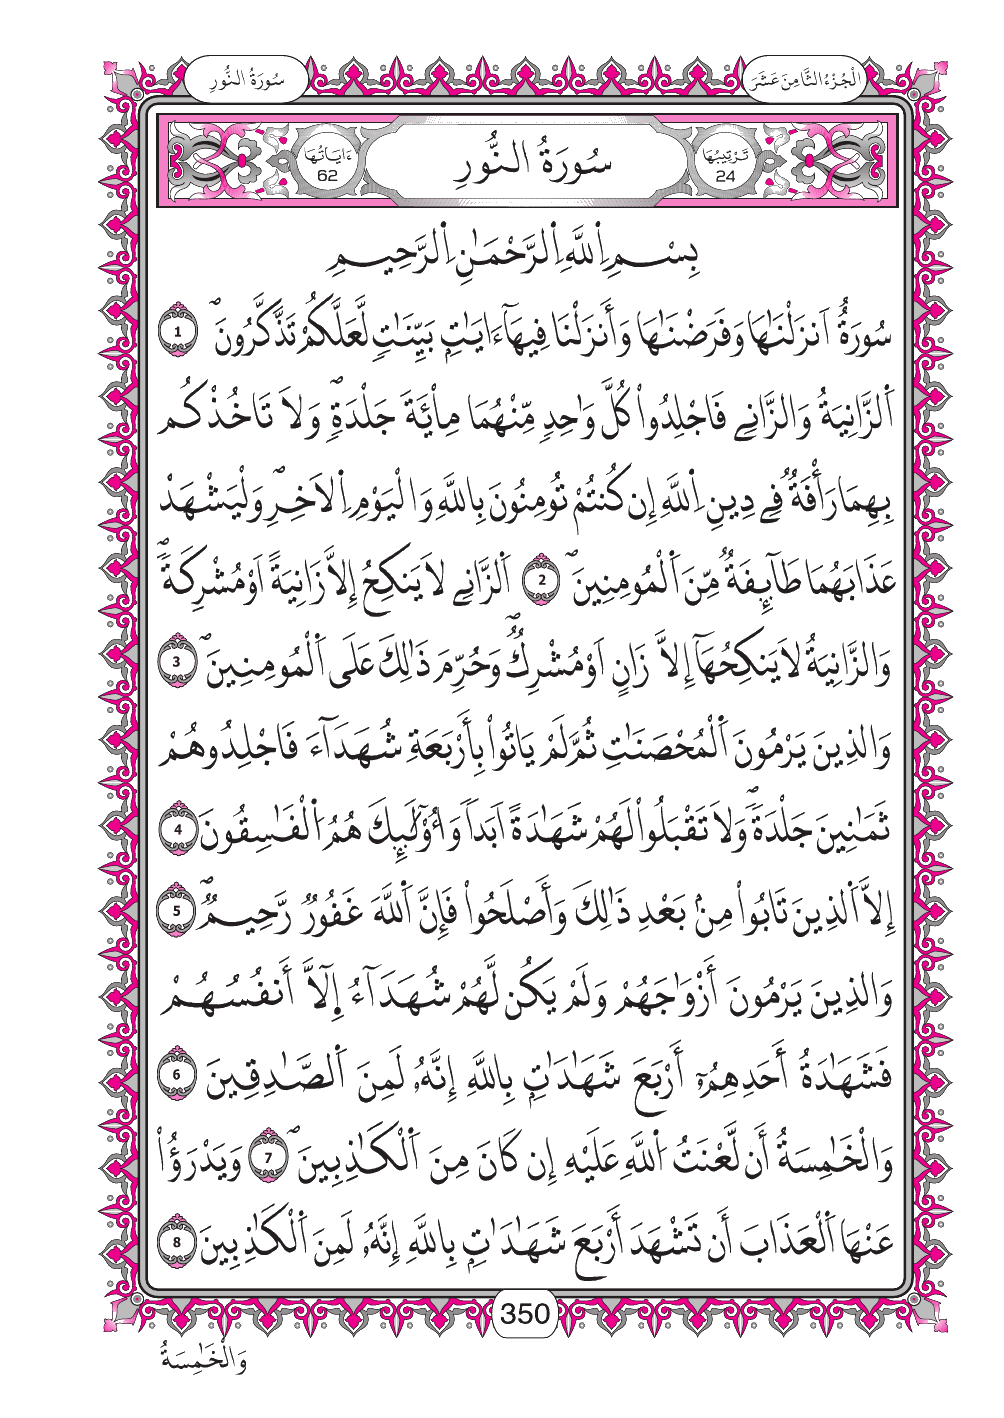 الْجُزْءُ الثَّامِنَ عَشَرَ
سُورَةُ النُّورِ
تَرْتِيبُهَا 24
سُورَةُ النُّورِ
ءَايَاتُهَا 62
بِسْمِ اِ۬للَّهِ اِ۬لرَّحْمَٰنِ اِ۬لرَّحِيمِ
سُورَةٌ اَنزَلْنَٰهَا وَفَرَضْنَٰهَا وَأَنزَلْنَا فِيهَآ ءَايَٰتِۢ بَيِّنَٰتٖ لَّعَلَّكُمْ تَذَّكَّرُونَۖ 1
اَ۬لزَّانِيَةُ وَالزَّانِے فَاجْلِدُواْ كُلَّ وَٰحِدٖ مِّنْهُمَا مِاْئَةَ جَلْدَةٖۖ وَلَا تَاخُذْكُم
بِهِمَا رَأْفَةٞ فِے دِينِ اِ۬للَّهِ إِن كُنتُمْ تُومِنُونَ بِاللَّهِ وَالْيَوْمِ اِ۬لَاخِرِۖ وَلْيَشْهَدْ
عَذَابَهُمَا طَآئِفَةٞ مِّنَ اَ۬لْمُومِنِينَۖ 2 اَ۬لزَّانِے لَا يَنكِحُ إِلَّا زَانِيَةً اَوْ مُشْرِكَةٗۖ
وَالزَّانِيَةُ لَا يَنكِحُهَآ إِلَّا زَانٍ اَوْ مُشْرِكٞۖ وَحُرِّمَ ذَٰلِكَ عَلَى اَ۬لْمُومِنِينَۖ 3
وَالذِينَ يَرْمُونَ اَ۬لْمُحْصَنَٰتِ ثُمَّ لَمْ يَاتُواْ بِأَرْبَعَةِ شُهَدَآءَ فَاجْلِدُوهُمْ
ثَمَٰنِينَ جَلْدَةٗۖ وَلَا تَقْبَلُواْ لَهُمْ شَهَٰدَةً اَبَداٗ وَأُوْلَٰٓئِكَ هُمُ اُ۬لْفَٰسِقُونَ 4
إِلَّا اَ۬لذِينَ تَابُواْ مِنۢ بَعْدِ ذَٰلِكَ وَأَصْلَحُواْ فَإِنَّ اَ۬للَّهَ غَفُورٞ رَّحِيمٞۖ 5
وَالذِينَ يَرْمُونَ أَزْوَٰجَهُمْ وَلَمْ يَكُن لَّهُمْ شُهَدَآءُ اِ۪لَّآ أَنفُسُهُمْ
فَشَهَٰدَةُ أَحَدِهِمُۥٓ أَرْبَعَ شَهَٰدَٰتِۢ بِاللَّهِ إِنَّهُۥ لَمِنَ اَ۬لصَّٰدِقِينَ 6
وَالْخَٰمِسَةُ أَن لَّعْنَتُ اُ۬للَّهِ عَلَيْهِ إِن كَانَ مِنَ اَ۬لْكَٰذِبِينَۖ 7 وَيَدْرَؤُاْ
عَنْهَا اَ۬لْعَذَابَ أَن تَشْهَدَ أَرْبَعَ شَهَٰدَٰتِۢ بِاللَّهِ إِنَّهُۥ لَمِنَ اَ۬لْكَٰذِبِينَ 8
350
وَالْخَٰمِسَةُ